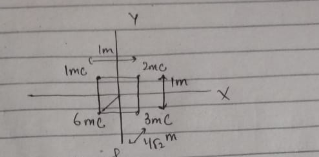 Y
1m
1mC 2mC
1m
X
6mC 3mC
1/√2 m
P